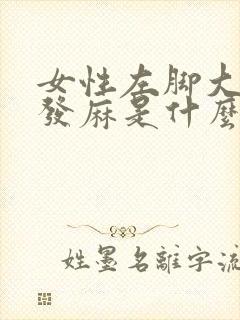 女性左脚大
發麻是什麼
姓墨名離字流